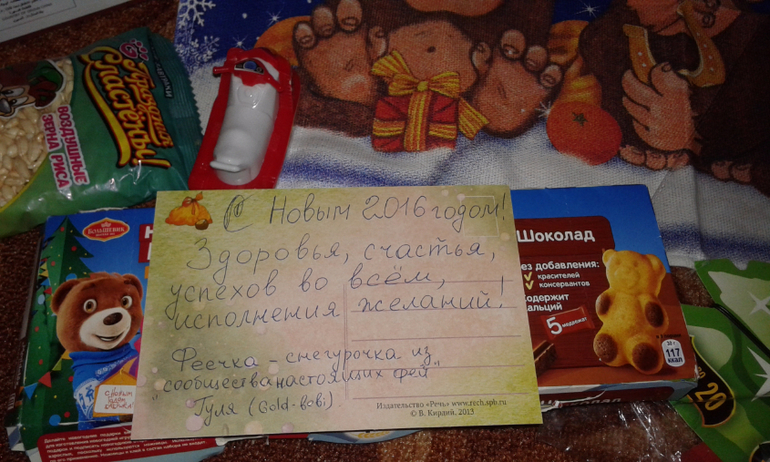 ВОЗДУШНЫЕ
ЗЕРНА РИСА
БОЛЬШЕВИК
С Новым 2016 годом!
Здоровья, счастья,
успехов во всём,
исполнения желаний!
Феечка - снегурочка из
"сообщества настоящих фей"
Гуля (Gold-bobi)
Издательство «Речь» www.rech.spb.ru
© В. Кирдий, 2013
Шоколад
ез добавления:
красителей
консервантов
одержит
альций
5 медвежат
117
ккал
20